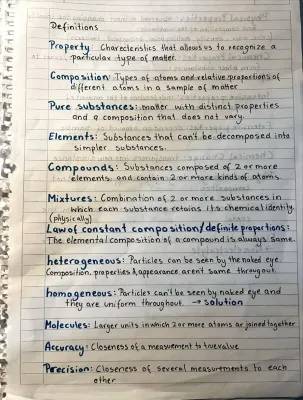 Definitions
Property: Charecteristics that allows us to recognize a
particular type of matter.
Composition: Types of atoms and relative proportions of
different atoms in a sample of matter
Pure substances: matter with distinct properties
and a composition that does not vary.
Elements: Substances that can't be decomposed into
simpler substances.
Compounds: Substances composed of 2 or more
elements and contain 2 or more kinds of atoms
Mixtures: Combination of 2 or more substances in
which each substance retains its chemical identity.
(physically)
Law of constant composition/definite proportions:
The elemental composition of a compound is always same.
heterogeneous: Particles can be seen by the naked eye
Composition, properties & appearance arent same througout.
homogeneous: Particles can't be seen by naked eye and
they are uniform throughout. → solution
Molecules: Larger units in which 2 or more atoms are joined together
Accuracy: Closeness of a measurement to true value
Precision: Closeness of several measurements to each
other